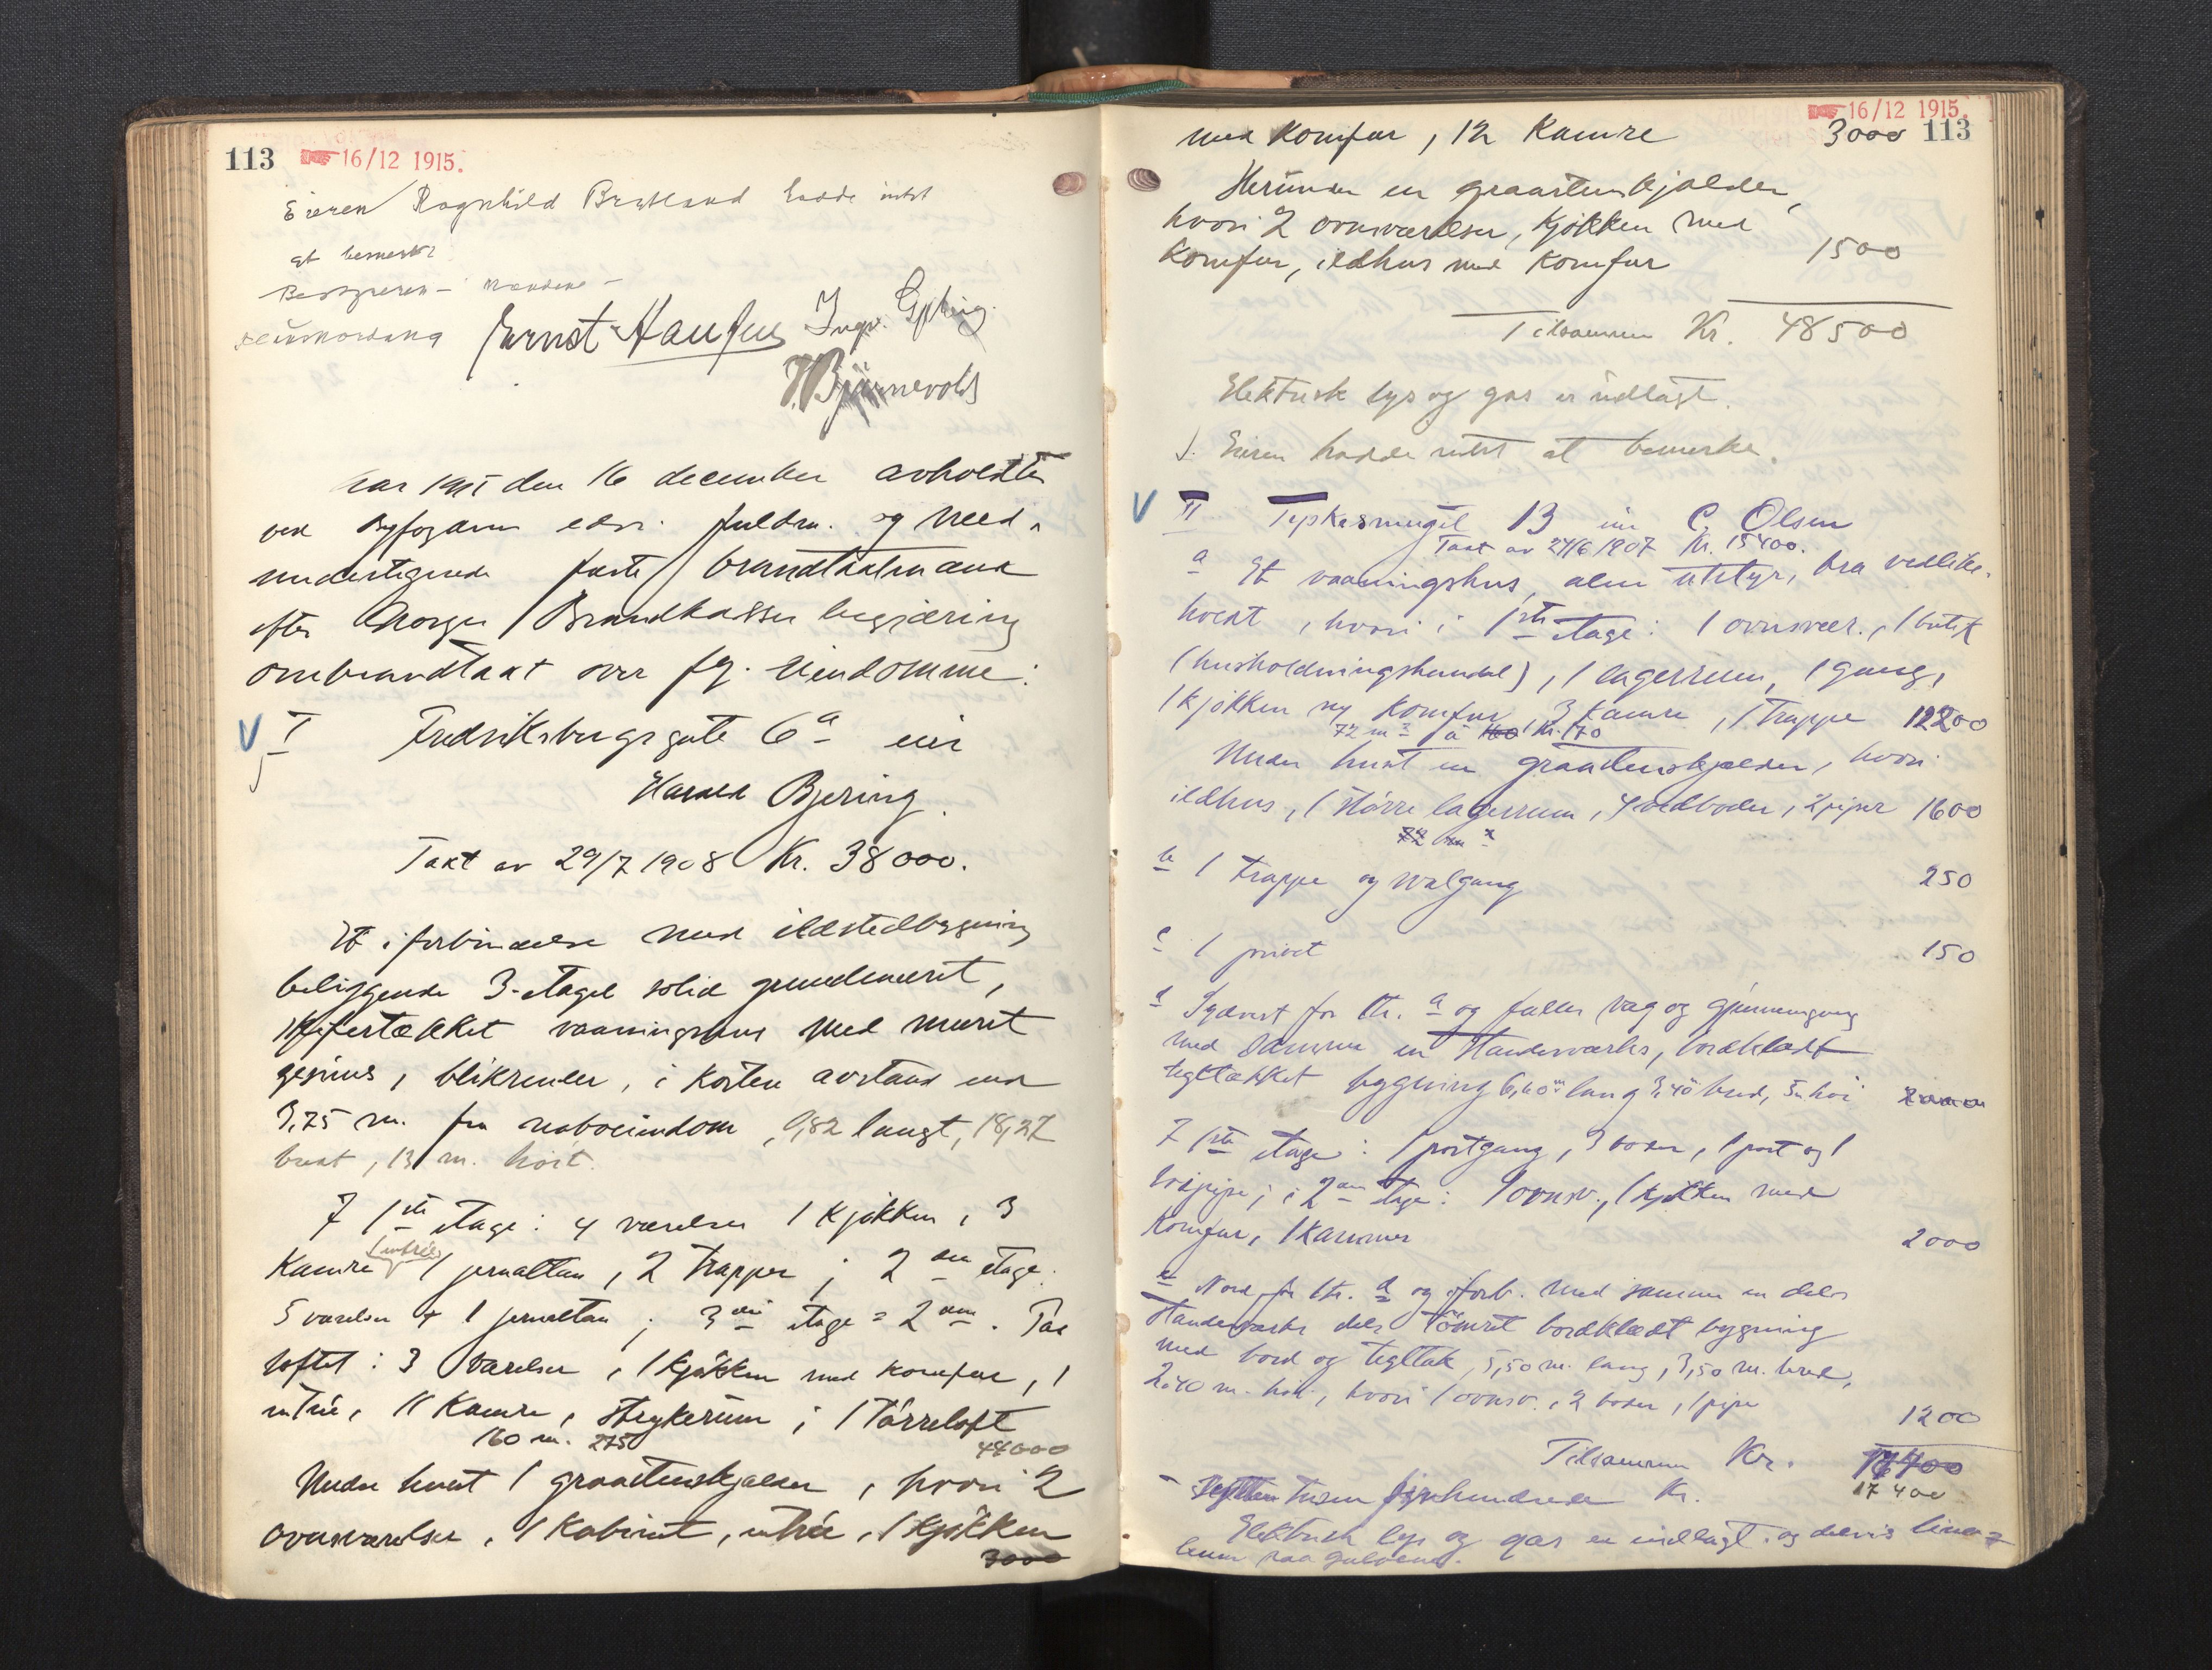 113 16/12 1915.
Eieren Ragnhild Brætland hadde intet
at bemerke
Bestyreren - mændene -
Ernst Hansen Ingv. Gjæring.
J. Bjørnevold
Aar 1915 den 16 december avholdtes
ved Byfogdens edsv. fuldm. og med
undertegnede faste brandtakstmænd
efter Norges Brandkasses begjæring
ombrandtakst over flg. eiendomme:
V I Fredriksbergsgate 6a eier
Harald Bjering.
Takt av 29/7 1908 Kr. 38000.
Et i forbindelse med ildstedbygning
beliggende 3-etages solid grundmuret,
skifertækket vaaningshus med muret
gesims, blikrender, i kortere avstand end
3,75 m. fra naboeiendom, 9,82 langt, 18,27
bredt, 13 m. høit.
I 1ste etage: 4 værelser 1 kjøkken, 3
Kamre (entrée) 1 jernaltan, 2 trapper; 2den etage:
5 værelser + 1 jernaltan; 3die etage = 2den. Paa
loftet: 3 værelser, 1 kjøkken med komfur, 1
entrée, 11 Kamre, strykerum; 1 tørreloft
160 m. 275 44000
Under huset 1 graastenskjælder, hvori 2
ovnsværelser, 1 Kabinet, entrée, 1 kjøkken
3000
16/12 1915.
med komfur, 12 Kamre 3000 113
Herunder en graastenskjælder,
hvori 2 ovnsværelser, kjøkken med
Komfur, ildhus med Komfur 1500
Tilsammen Kr. 48500
Elektrisk lys og gas er indlagt.
Eieren hadde intet at bemerke.
V II Tyskesmuget 13 eier C. Olsen
Takt av 27/6 1907 Kr. 15400.
a Et vaaningshus, alm utstyr, bra vedlike-
holdt, hvori i 1ste etage: 1 ovnsvær., 1 butik
(husholdningshandel), 1 lagerrum, 1 gang,
1 kjøkken m/ Komfur, 3 kamre, 1 trappe 12200
72 m2 à 160 Kr. 170
Under huset en graastenskjælder, hvori
ildhus, 1 større lagerrum, 4 vedboder, 2 piper 1600
72 m2
b 1 trappe og svalgang 250
c 1 privet 150
d Sydvest for litr. a og fælles væg og gjennemgang
med samme en standerværks, bordklædt
tegltækket bygning 6,60m lang 3,40 bred, 5m høi 2000
I 1ste etage: 1 portgang, 3 boder, 1 port og 1
pipe; i 2den etage: 1 ovnsv., 1 kjøkken med
komfur, 1 kammer 2000
e Nord for litr. d og i forb. med samme en dels
standerværks dels tømret bordklædt bygning
med bord og tegltak, 5,50 m. lang, 3,50 m. bred,
2.40 m. høi, hvori 1 ovnsv., 2 boder, 1 pipe 1200
Tilsammen Kr. 17400
17400
Sytten tusen firehundrede Kr.
Elektrisk lys og gas er indlagt og delvis lino-
leum paa gulvene.